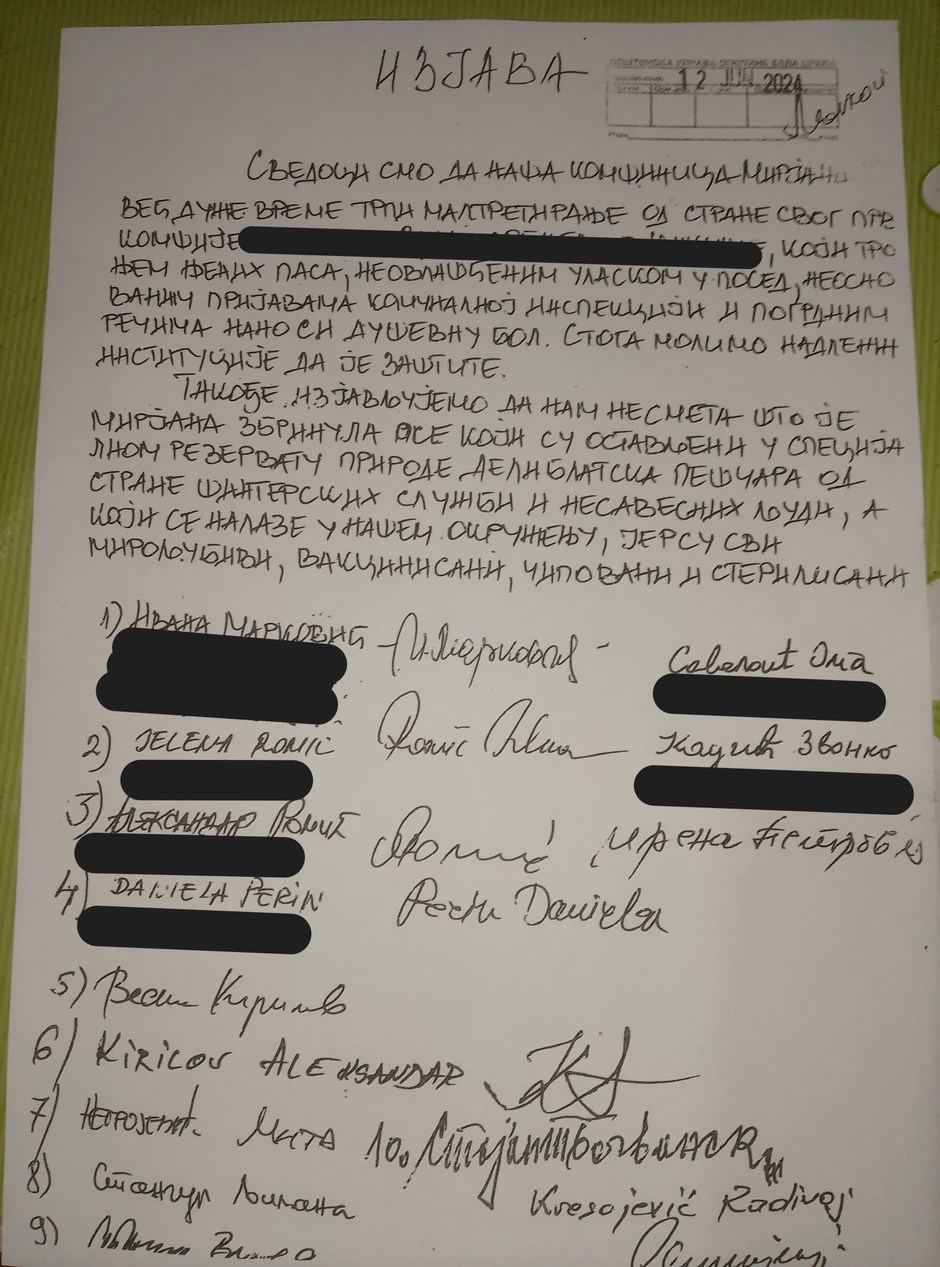 ИЗЈАВА
ОПШТИНСКА УПРАВА ОПШТИНЕ БЕЛА ЦРКВА
12 JUN 2024
СВЕДОЦИ СМО ДА НАША КОМШИНИЦА МИРЈАНА
ВЕЋ ДУЖЕ ВРЕМЕ ТРПИ МАЛТРЕТИРАЊЕ ОД СТРАНЕ СВОГ ПРВ
КОМШИЈЕ , КОЈИ ТРО
ЊЕМ ЊЕНИХ ПАСА, НЕОВЛАШЋЕНИМ УЛАСКОМ У ПОСЕД, НЕОСНО
ВАНИМ ПРИЈАВАМА КОМУНАЛНОЈ ИНСПЕКЦИЈИ И ПОГРДНИМ
РЕЧИМА НАНОСИ ДУШЕВНУ БОЛ. СТОГА МОЛИМО НАДЛЕЖН
ИНСТИТУЦИЈЕ ДА ЈЕ ЗАШТИТЕ.
ТАКОЂЕ ИЗЈАВЉУЈЕМО ДА НАМ НЕ СМЕТА ШТО ЈЕ
МИРЈАНА ЗБРИНУЛА ПСЕ КОЈИ СУ ОСТАВЉЕНИ У СПЕЦИЈА
ЛНОМ РЕЗЕРВАТУ ПРИРОДЕ ДЕЛИБЛАТСКА ПЕШЧАРА ОД
СТРАНЕ ШИНТЕРСКИХ СЛУЖБИ И НЕСАВЕСНИХ ЉУДИ, А
КОЈИ СЕ НАЛАЗЕ У НАШЕМ ОКРУЖЕЊУ, ЈЕР СУ СВИ
МИРОЉУБИВИ, ВАКЦИНИСАНИ, ЧИПОВАНИ И СТЕРИЛИСАНИ
1) ИВАНА МАРКОВИЋ
2) JELENA ROMIĆ Кадић Звонко
3) АЛЕКСАНДАР РОМИЋ
4) DANIELA PERIN Perin Daniela
5) Весна
6) KIRILOV ALEKSANDAR
7) МИТА 10.
8)
Kresojević Radivoj
9)